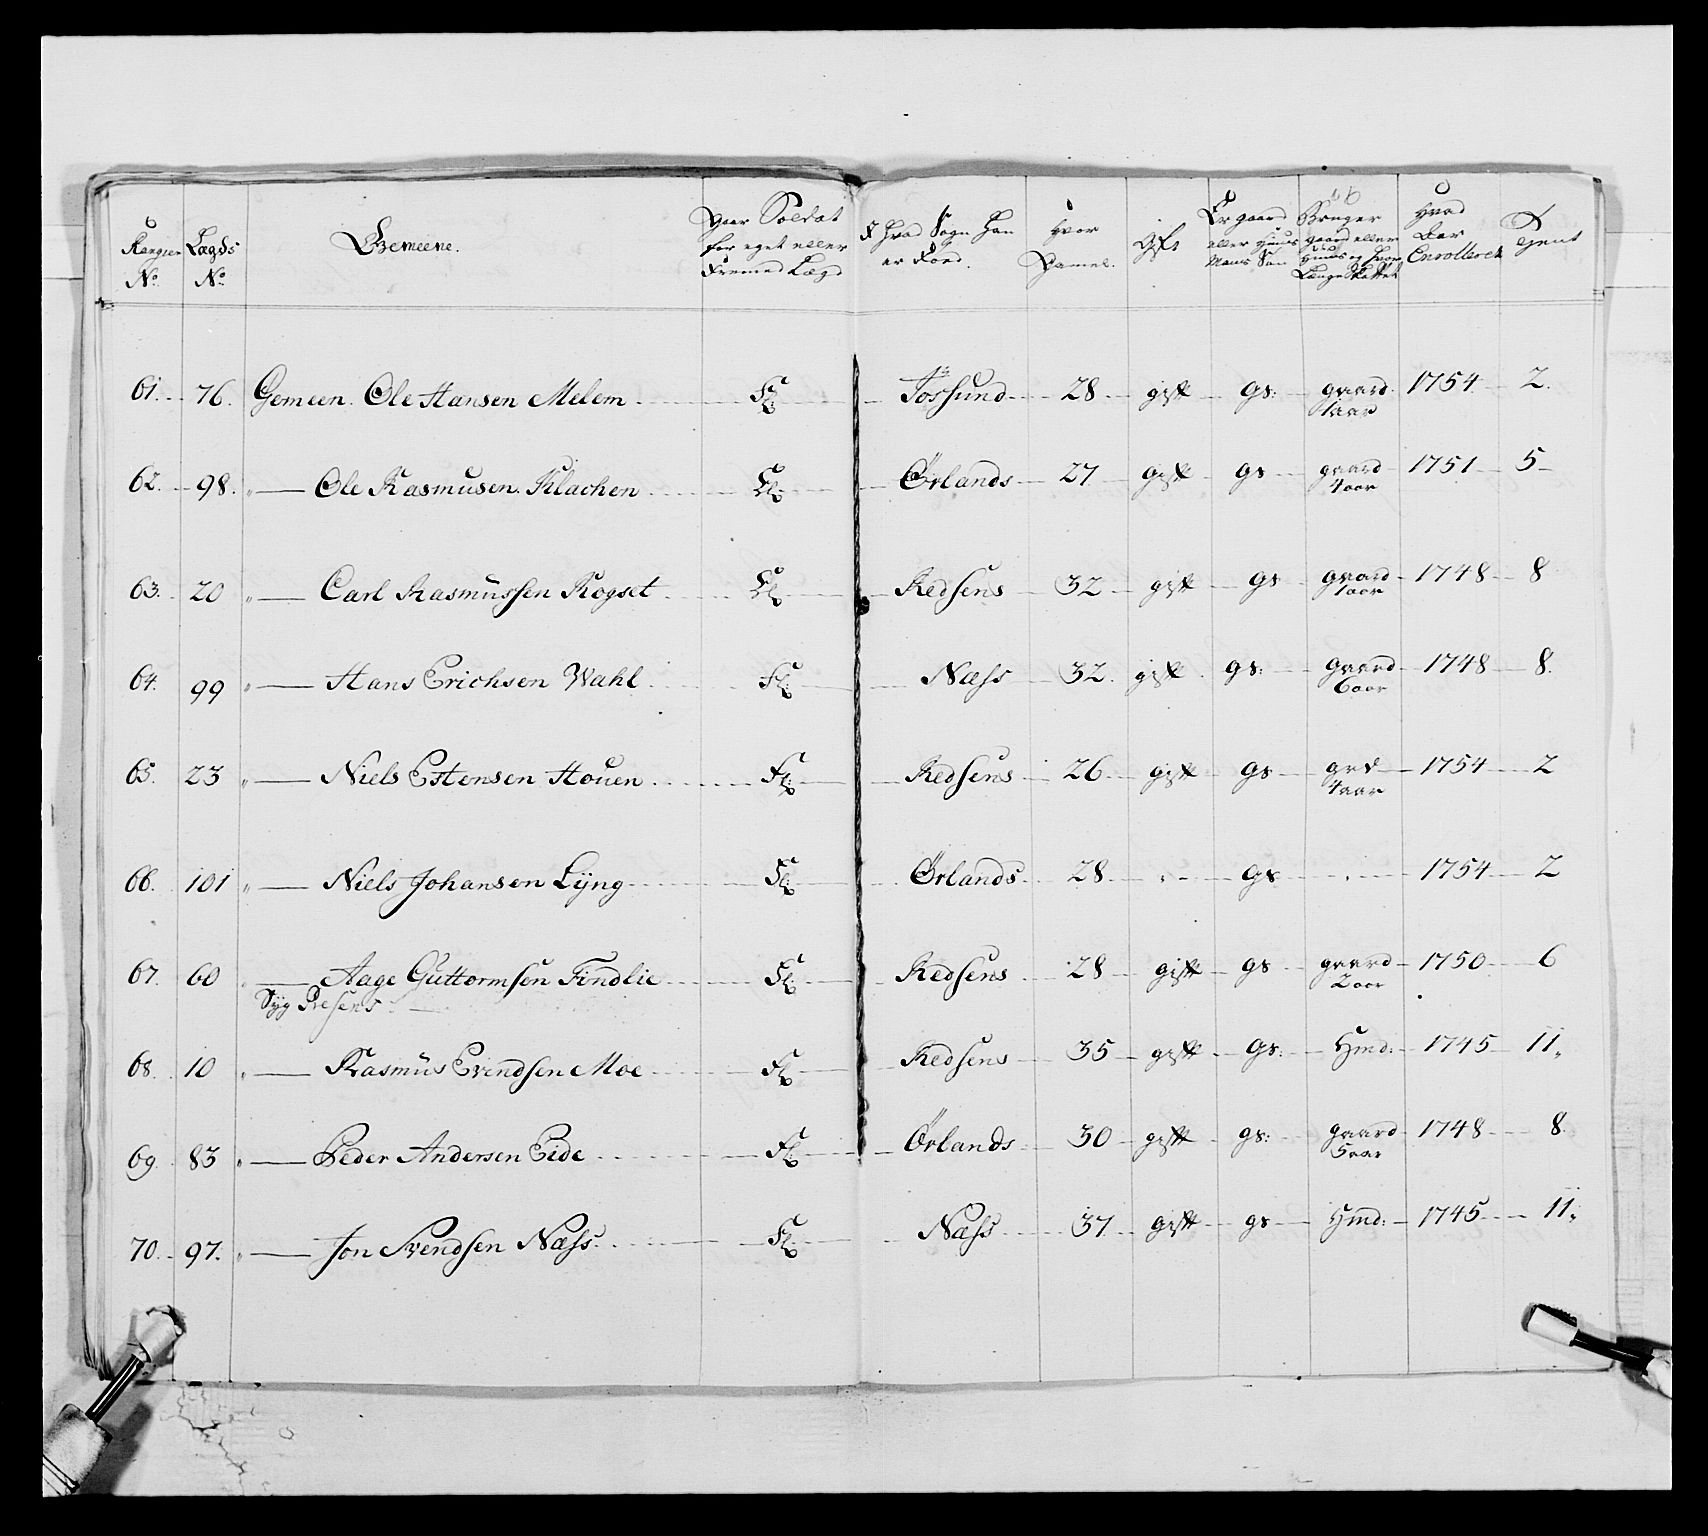 Rangier No | Lægds No | Gemeene. | Vaar Soldat for eget eller Fremed Lægd | I hvad Sogn han er Föed. | Hvor Gamel. | Gift | Er gaard eller Huus Mans Søn | Bruger gaard eller Huus og hvor Længe Skattet | Hvad Aar Enrolleret | Tjent
61. | 76. | Gemeen. Ole Hansen Melem | Fl: | Tössund | 28 | gift | gs: | gaard 1 aar | 1754 | 2.
62. | 98. | " — Ole Rasmusen Klachen | El: | Örlands | 27 | gift | gs | gaard 4 aar | 1751 | 5
63. | 20 | " — Carl Rasmussen Rogset | El: | Redsens | 32 | gift | gs | gaard 1 aar | 1748 | 8
64. | 99 | " — Hans Erichsen Wahl | Fl: | Næss | 32. | gift | gs: | gaard 6 aar | 1748 | 8.
65. | 23 | " — Niels Estensen Houen | Fl: | Redsens | 26 | gift | gs | grd 4 aar | 1754 | 2
66. | 101 | " — Niels Johansen Lyng | Fl: | Örlands | 28 | " | gs | " | 1754 | 2
67. | 60 | " — Aage Guttormsen Findlie | Fl: | Redsens | 28 | gift | gs | gaard 2 aar | 1750 | 6
Syg Presens
68. | 10 | " — Rasmus Evindsen Moe | Fl: | Redsens | 35 | gift | gs: | Hmd: | 1745 | 11"
69. | 83 | " — Peder Andersen Eide | Fl: | Örlands | 30 | gift | gs: | gaard 5 aar | 1748 | 8
70. | 97. | " — Jon Svendsen Næss | Fl: | Næss | 37 | gift | gs | Hmd: | 1745 | 11"